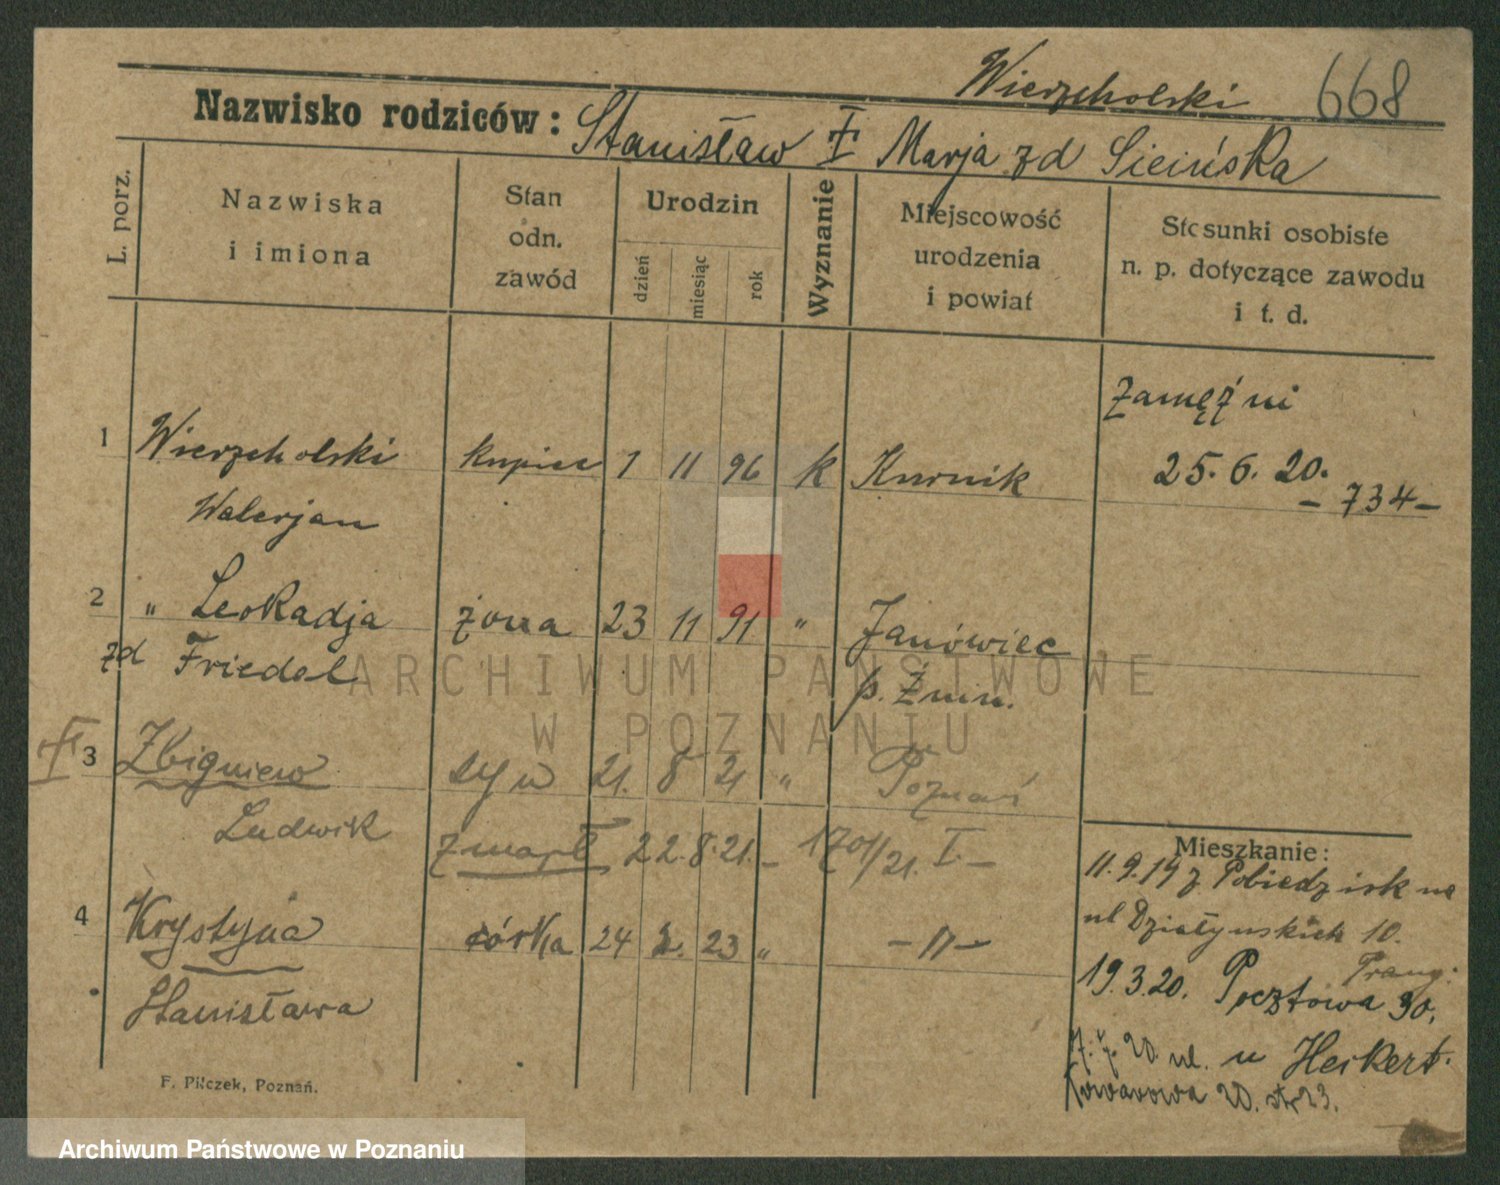 Wierzcholski 668
Nazwisko rodziców: Stanisław Marja zd Sicińska
L. porz.
Nazwiska
i imiona
Stan
odn.
zawód
Urodzin
dzień
miesiąc
rok
Wyznanie
Miejscowość
urodzenia
i powiat
Stosunki osobiste
n. p. dotyczące zawodu
i t. d.
Zamężni
1 Wierzcholski kupiec 1 11 96 k Kurnik 25. 6. 20.
- 734 -
Walerjan
2 " Leokadja żona 23 11 91 " Janówiec
zd Friedel p. Żnin.
3 Zbigniew syn 21. 8 21 " Poznań
Ludwik zmarł 22. 8. 21. - 1701/21. I. -
Mieszkanie:
11. 9. 19 z Pobiedzisk na
4 Krystyna córka 24 2. 23 " - " -
ul Działyńskich 10.
Stanisława
19. 3. 20. Pocztowa 30,
7. 20 ul. u Heikert.
20. str 23.
F. Pilczek, Poznań.
ARCHIWUM PAŃSTWOWE
W POZNANIU
Archiwum Państwowe w Poznaniu